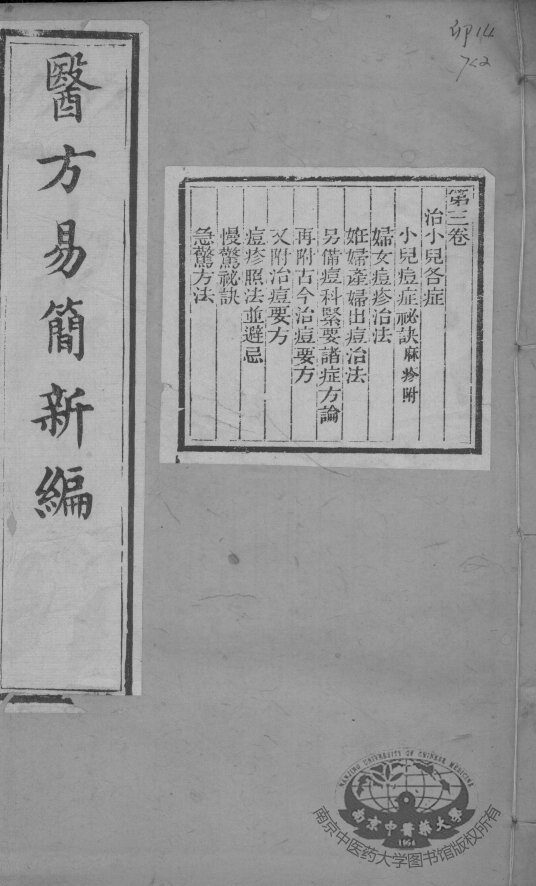 醫方易簡新編
第三卷
治小兒各症
小兒痘症祕訣麻疹附
婦女痘疹治法
姙婦產婦出痘治法
另備痘科緊要諸症方論
再附古今治痘要方
又附治痘要方
痘疹照法並避忌
慢驚祕訣
急驚方法
NANJING UNIVERSITY OF CHINESE MEDICINE
南京中醫藥大學
1954
南京中医药大学图书馆版权所有